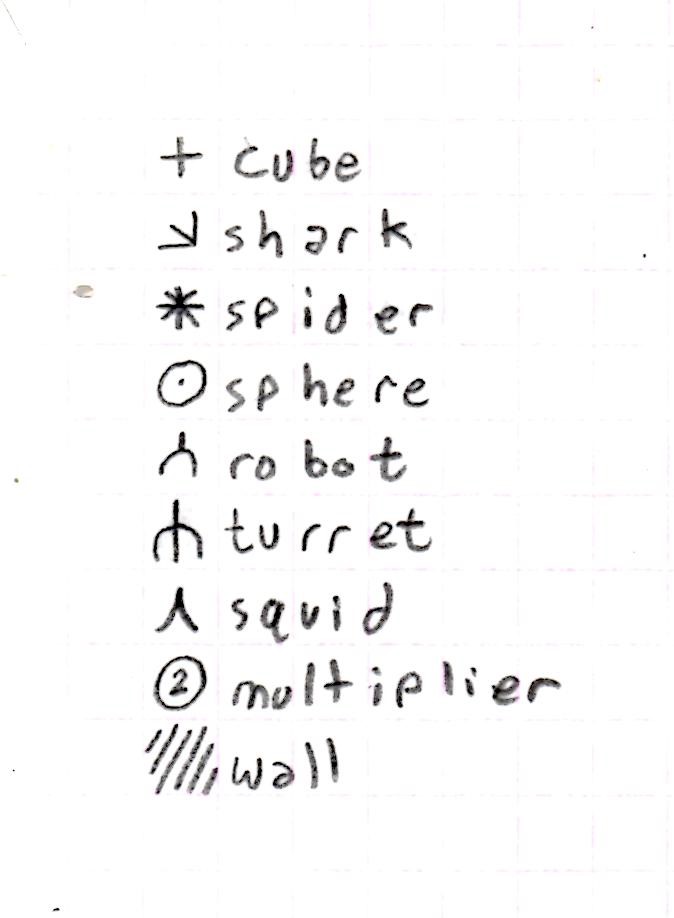 + cube
shark
* spider
sphere
robot
turret
squid
2 multiplier
wall